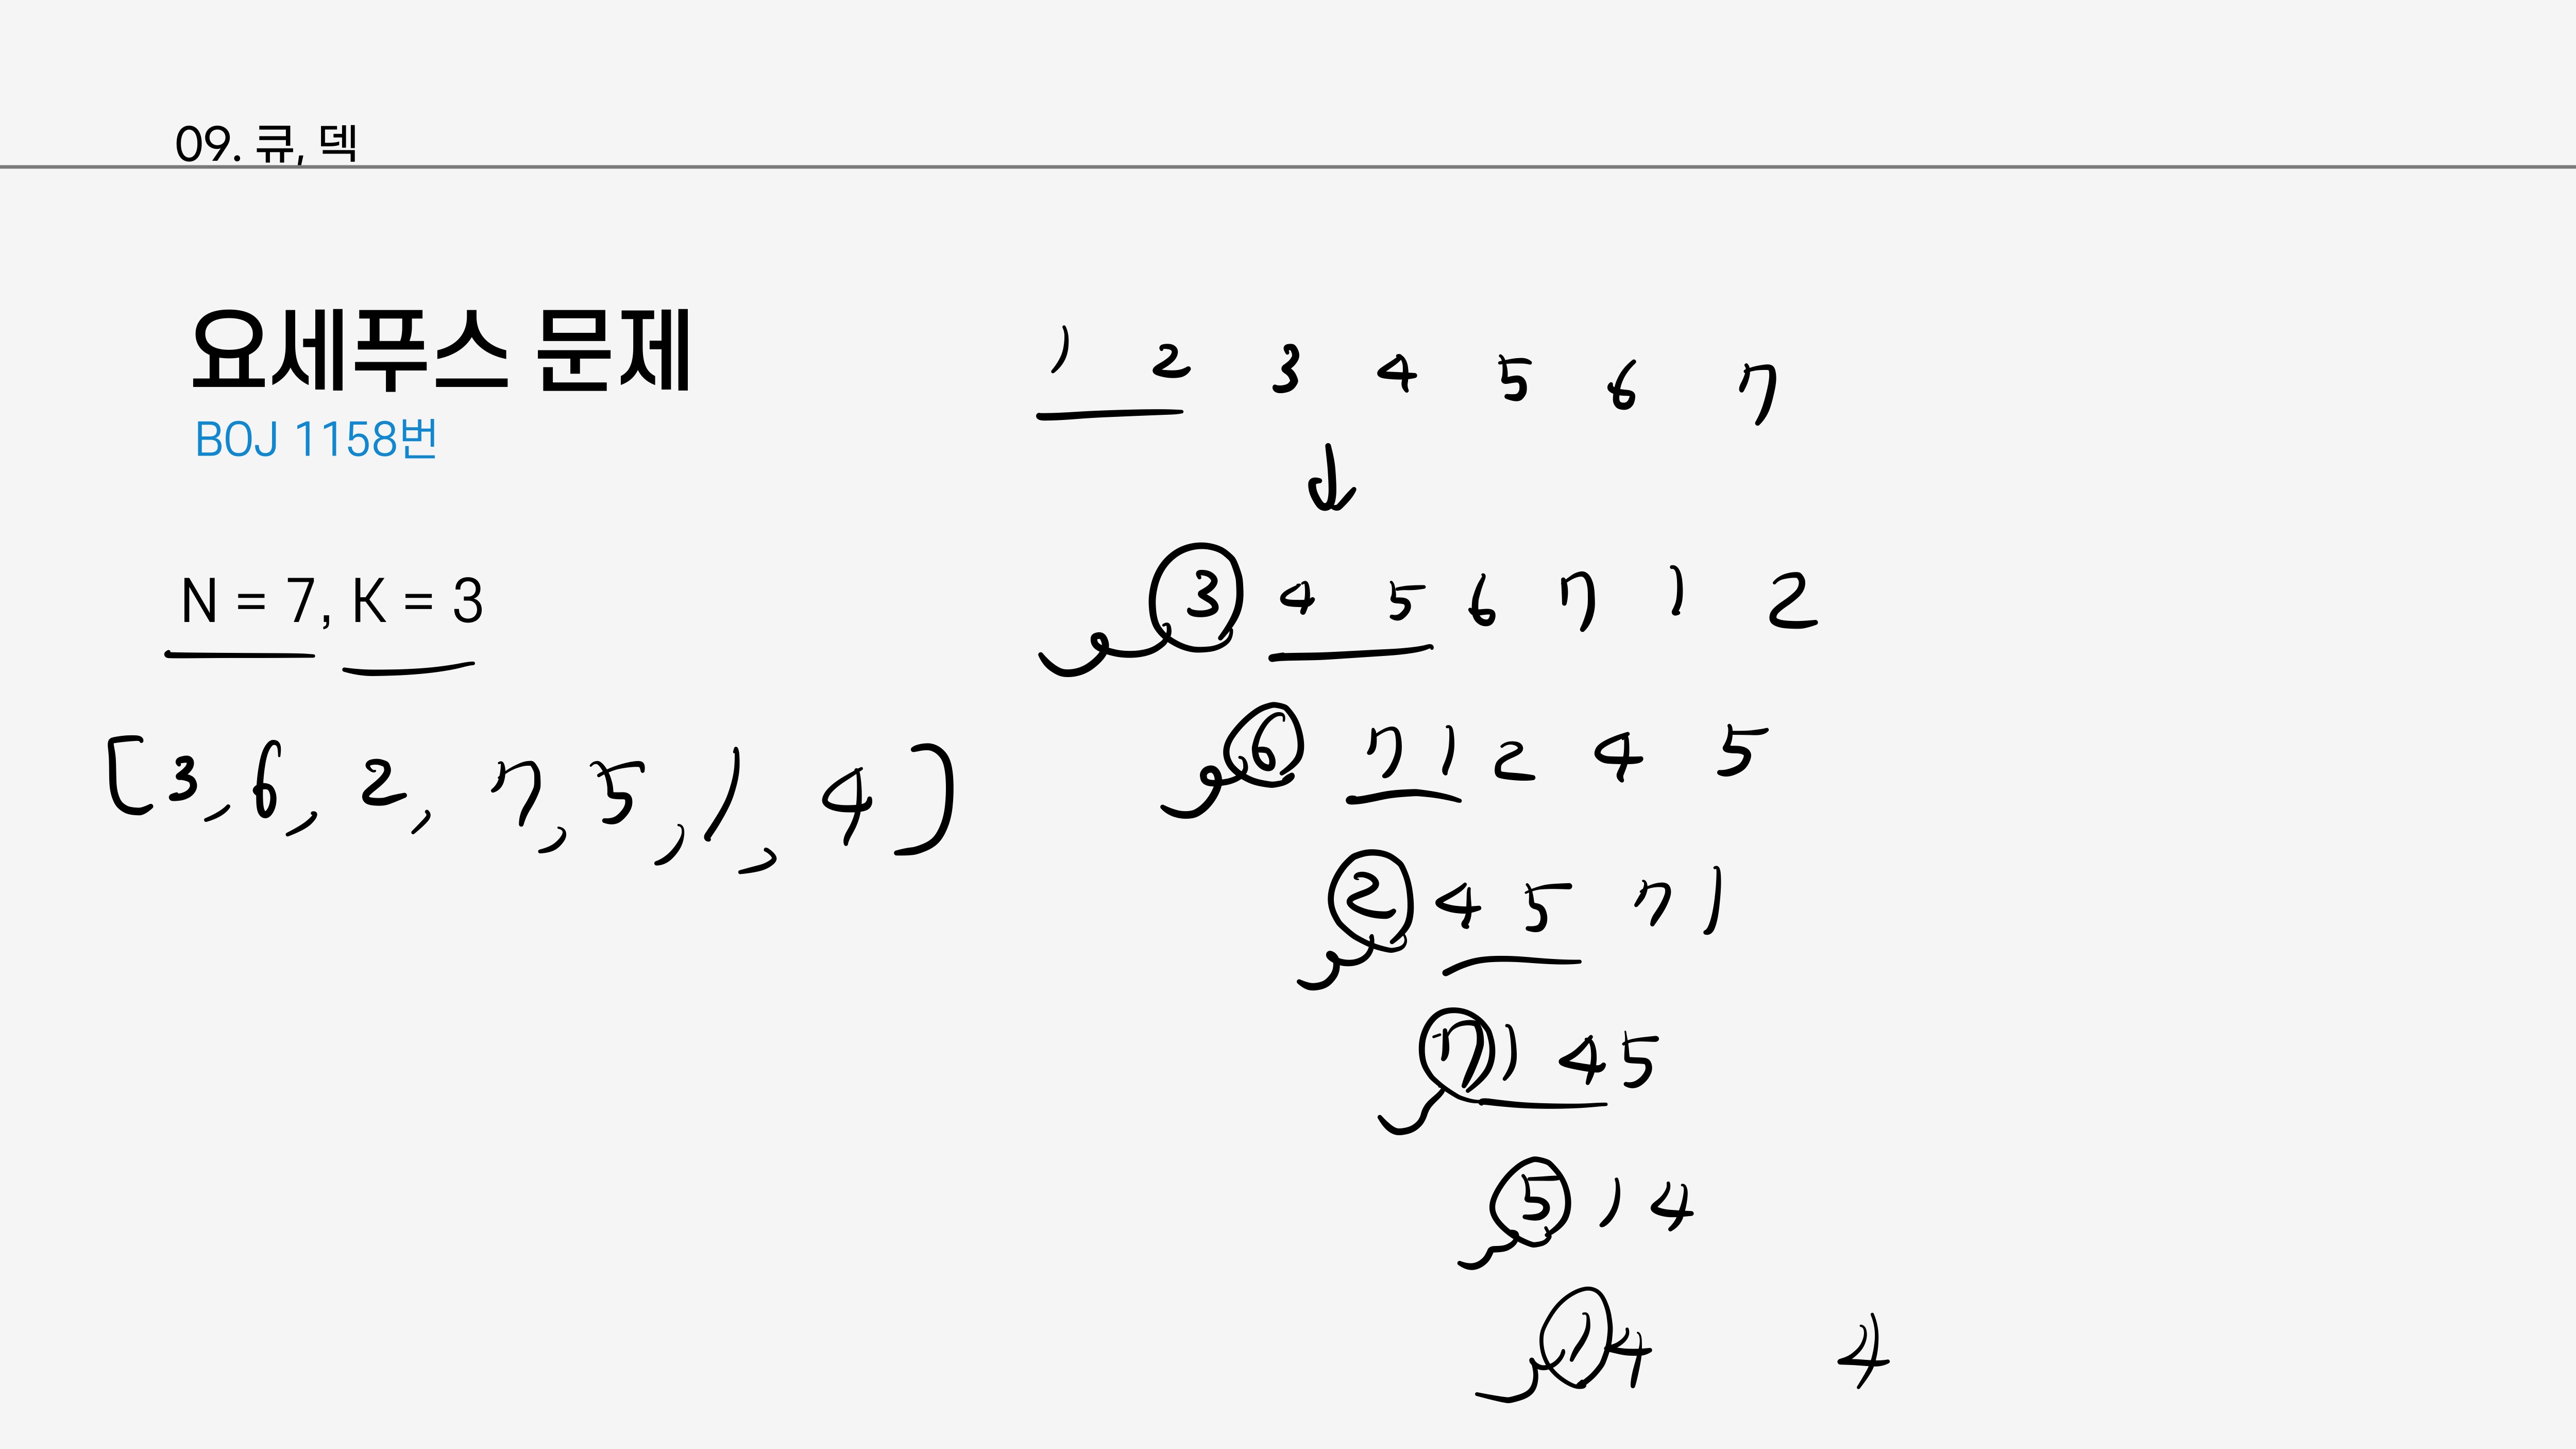 09. 큐, 덱
요세푸스 문제
BOJ 1158번
N = 7, K = 3
[3, 6, 2, 7, 5, 1, 4]
1 2 3 4 5 6 7
3 4 5 6 7 1 2
6 7 1 2 4 5
2 4 5 7 1
7 1 4 5
5 1 4
1 4 4